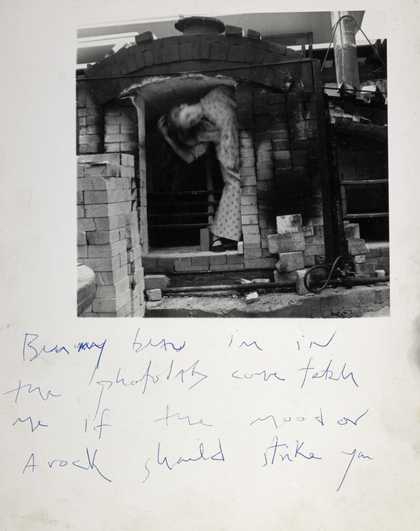 im in
the photolab come fetch
me if the mood or
A rock should strike you